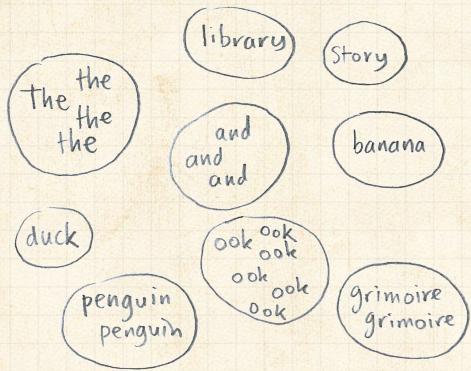 library
story
The the
the
the
and
and
and
banana
duck
ook ook
ook
ook
ook
ook
penguin
penguin
grimoire
grimoire